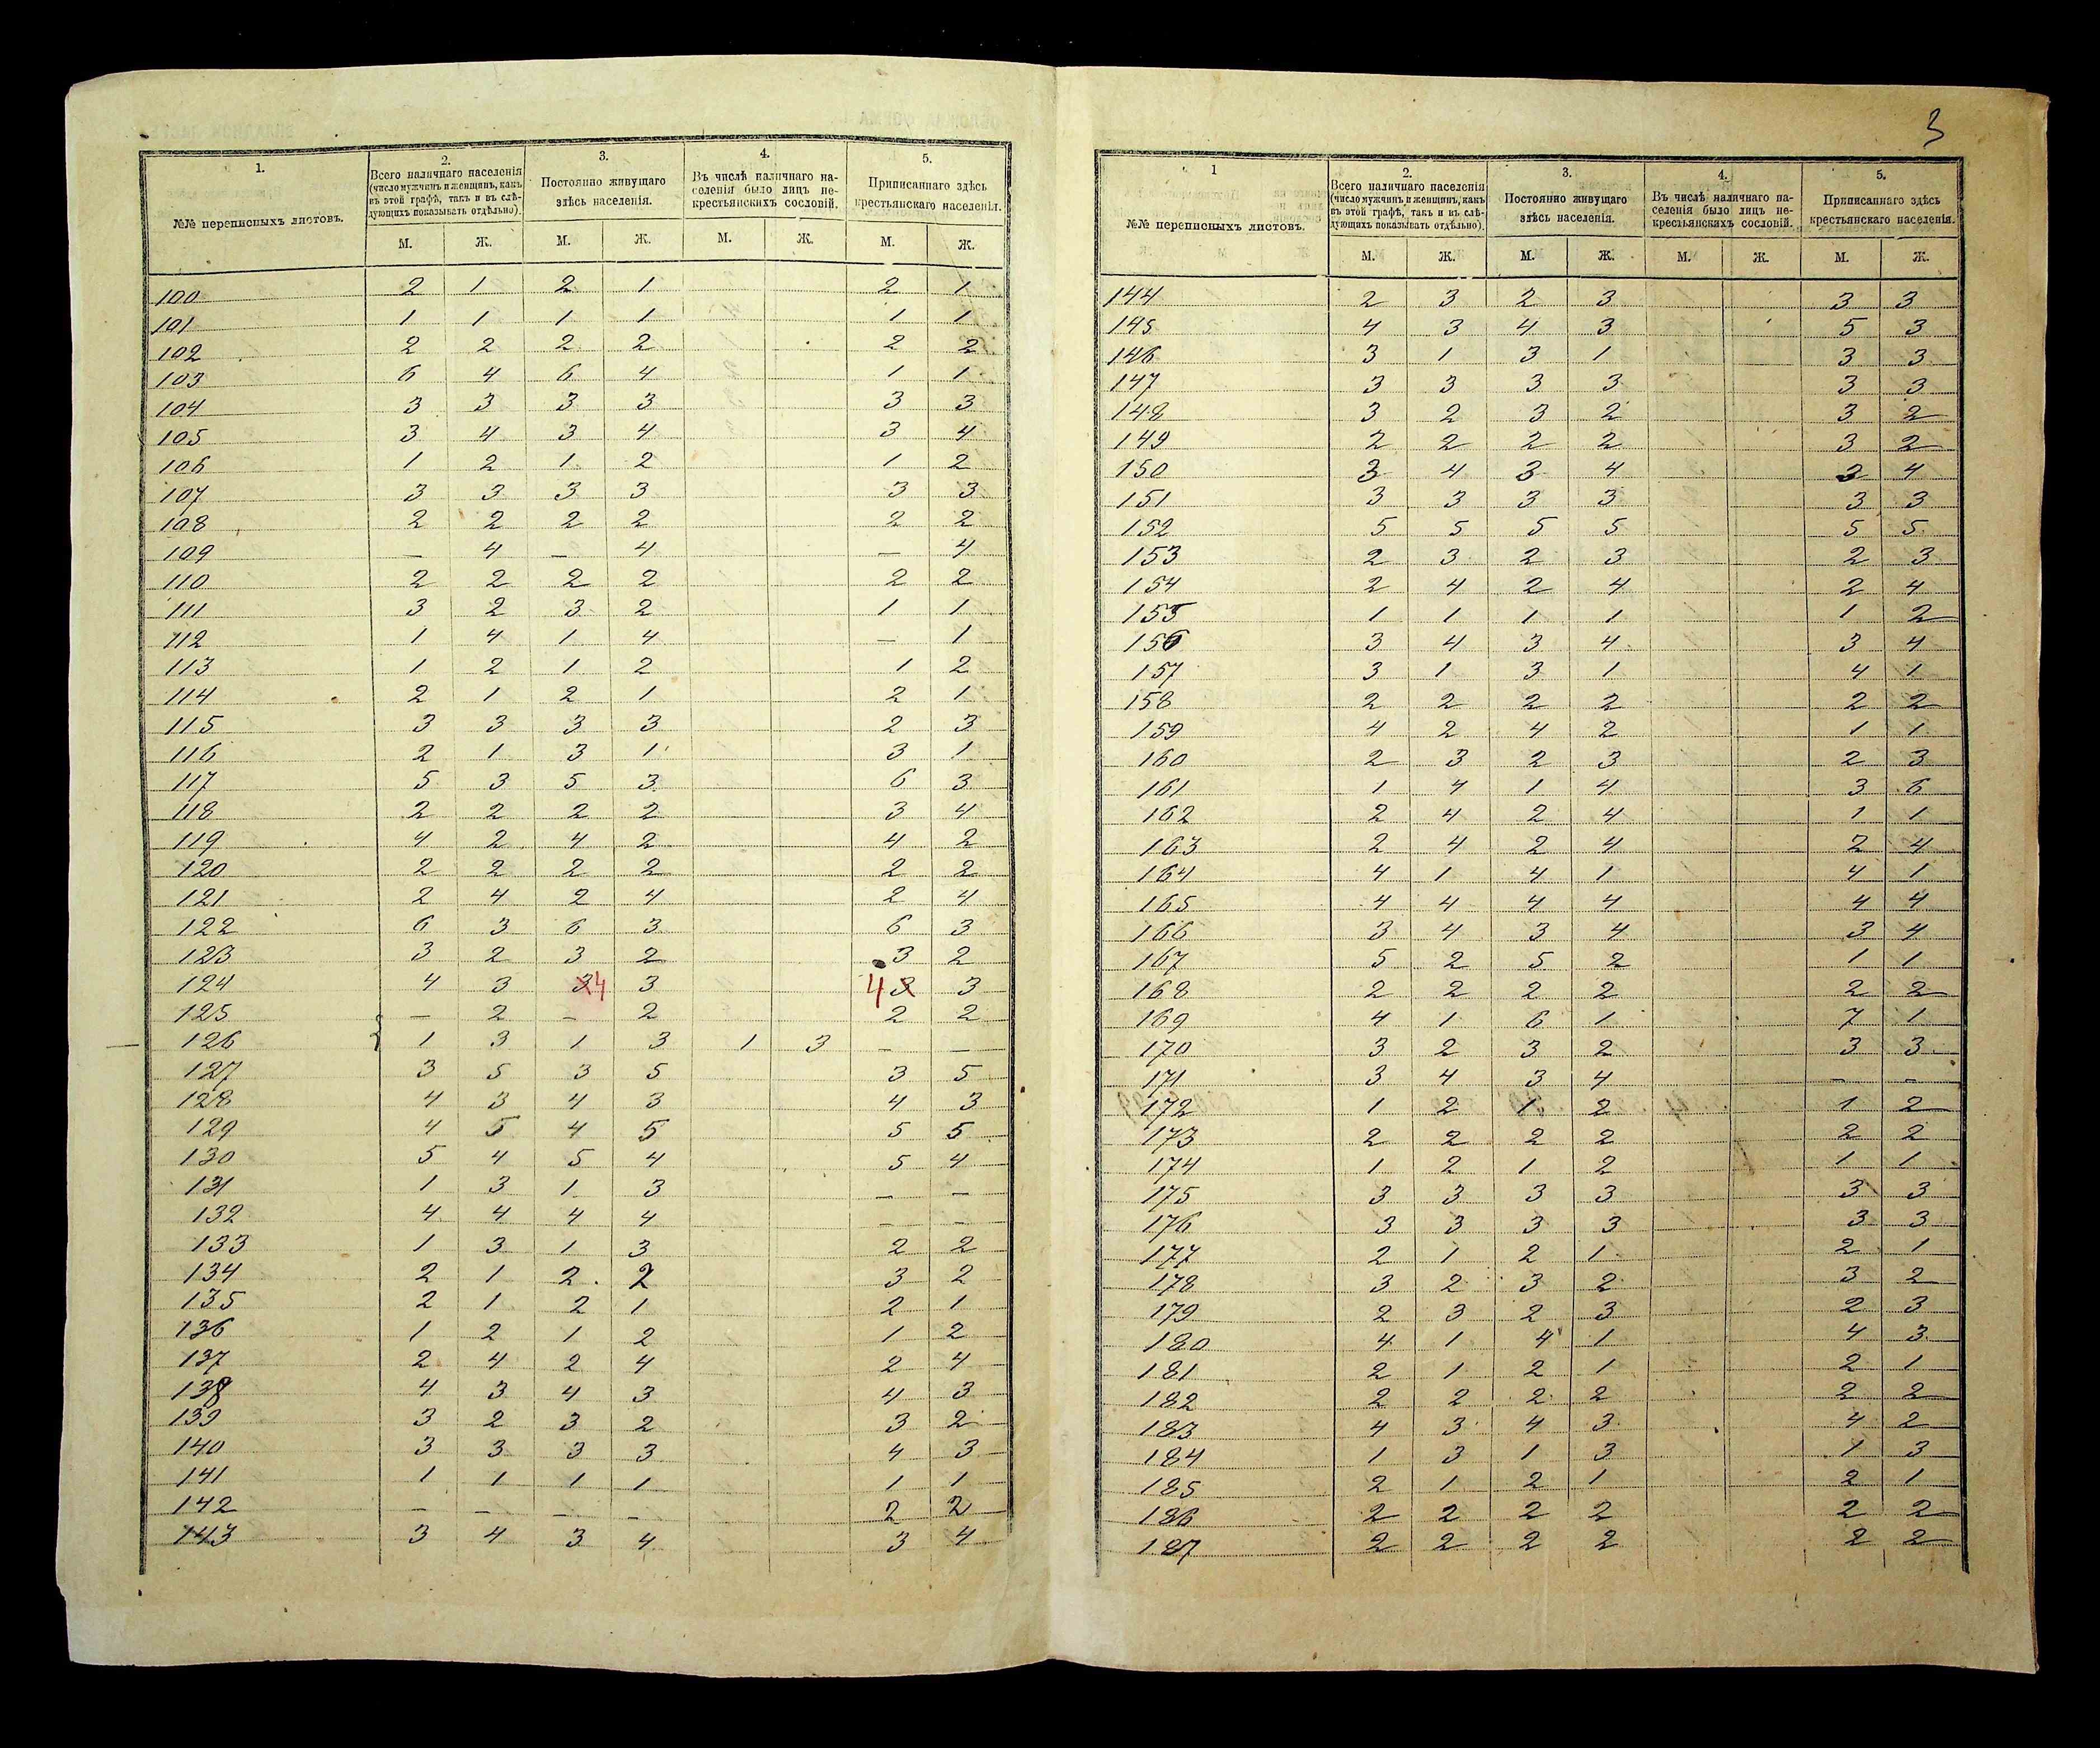 1. 2. 3. 4. 5.
№№ переписныхъ листовъ. Всего наличнаго населенія (число мужчинъ и женщинъ, какъ въ этой графѣ, такъ и въ слѣдующихъ показывать отдѣльно). Постоянно живущаго здѣсь населенія. Въ числѣ наличнаго населенія было лицъ некрестьянскихъ сословій. Приписаннаго здѣсь крестьянскаго населенія.
М. Ж. М. Ж. М. Ж. М. Ж.
100 2 1 2 1 2 1
101 1 1 1 1 1 1
102 2 2 2 2 2 2
103 6 4 6 4 1 1
104 3 3 3 3 3 3
105 3 4 3 4 3 4
106 1 2 1 2 1 2
107 3 3 3 3 3 3
108 2 2 2 2 2 2
109 — 4 — 4 — 4
110 2 2 2 2 2 2
111 3 2 3 2 1 1
112 1 4 1 4 — 1
113 1 2 1 2 1 2
114 2 1 2 1 2 1
115 3 3 3 3 2 3
116 2 1 3 1 3 1
117 5 3 5 3 6 3
118 2 2 2 2 3 4
119 4 2 4 2 4 2
120 2 2 2 2 2 2
121 2 4 2 4 2 4
122 6 3 6 3 6 3
123 3 2 3 2 3 2
124 4 3 3 4 3 4 3 3
125 — 2 — 2 2 2
126 1 3 1 3 1 3 — —
127 3 5 3 5 3 5
128 4 3 4 3 4 3
129 4 5 4 5 5 5
130 5 4 5 4 5 4
131 1 3 1 3 — —
132 4 4 4 4 — —
133 1 3 1 3 2 2
134 2 1 2 2 3 2
135 2 1 2 1 2 1
136 1 2 1 2 1 2
137 2 4 2 4 2 4
138 4 3 4 3 4 3
139 3 2 3 2 3 2
140 3 3 3 3 4 3
141 1 1 1 1 1 1
142 — — — — 2 2
143 3 4 3 4 3 4
3
1 2. 3. 4. 5.
№№ переписныхъ листовъ. Всего наличнаго населенія (число мужчинъ и женщинъ, какъ въ этой графѣ, такъ и въ слѣдующихъ показывать отдѣльно). Постоянно живущаго здѣсь населенія. Въ числѣ наличнаго населенія было лицъ некрестьянскихъ сословій. Приписаннаго здѣсь крестьянскаго населенія.
М. Ж. М. Ж. М. Ж. М. Ж.
144 2 3 2 3 3 3
145 4 3 4 3 5 3
146 3 1 3 1 3 3
147 3 3 3 3 3 3
148 3 2 3 2 3 2
149 2 2 2 2 3 2
150 3 4 3 4 3 4
151 3 3 3 3 3 3
152 5 5 5 5 5 5
153 2 3 2 3 2 3
154 2 4 2 4 2 4
155 1 1 1 1 1 2
156 3 4 3 4 3 4
157 3 1 3 1 4 1
158 2 2 2 2 2 2
159 4 2 4 2 1 1
160 2 3 2 3 2 3
161 1 4 1 4 3 6
162 2 4 2 4 1 1
163 2 4 2 4 2 4
164 4 1 4 1 4 1
165 4 4 4 4 4 4
166 3 4 3 4 3 4
167 5 2 5 2 1 1
168 2 2 2 2 2 2
169 4 1 6 1 7 1
170 3 2 3 2 3 3
171 3 4 3 4 — —
172 1 2 1 2 1 2
173 2 2 2 2 2 2
174 1 2 1 2 1 1
175 3 3 3 3 3 3
176 3 3 3 3 3 3
177 2 1 2 1 2 1
178 3 2 3 2 3 2
179 2 3 2 3 2 3
180 4 1 4 1 4 3
181 2 1 2 1 2 1
182 2 2 2 2 2 2
183 4 3 4 3 4 2
184 1 3 1 3 1 3
185 2 1 2 1 2 1
186 2 2 2 2 2 2
187 2 2 2 2 2 2